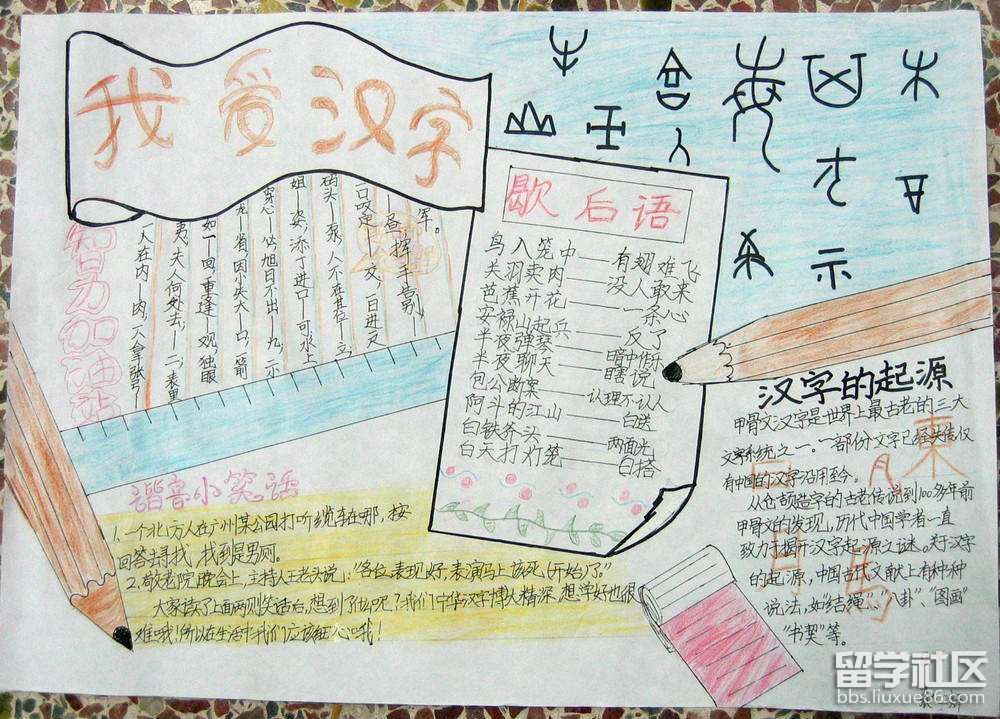 我爱汉字
智力加油站
军。
—昼，挥手告别—
一口咬定—交，一日进又
码头—泵，人不在其位—立，
姐—姿，添丁进口—可，水上
穷心—必，旭日不出—九，二小
龙，省，因小失大—口，箭
如—回，重逢—观，独眼
夷，夫人何处去，—二，表里
一人在内—肉，一人拿张弓—
歇后语
鸟入笼中——有翅难飞
关羽卖肉——没人敢来
芭蕉开花——一条心
安禄山起兵——反了
半夜弹琴——暗中作乐
半夜聊天——瞎说
包公断案——认理不认人
阿斗的江山——白送
白铁斧头——两面光
白天打灯笼——白搭
谐音小笑话
1.一个北方人在广州某公园打听缆车在哪，按
回答去寻找，找到是男厕。
2.敬老院晚会上，主持人王老头说：“各位表现好，表演马上该死（开始）了。”
大家读了上面两则笑话后，想到了什么呢？我们中华汉字博大精深，想学好也很
难哦！所以在生活中我们应该细心哦！
汉字的起源
甲骨文汉字是世界上最古老的三大
文字系统之一。一部份文字已经失传仅
有中国的汉字沿用至今。
从仓颉造字的古老传说到100多年前
甲骨文的发现，历代中国学者一直
致力于揭开汉字起源之谜。关于汉字
的起源，中国古代文献上有种种
说法，如“结绳”、“八卦”、“图画”
“书契”等。
留学社区
bbs.liuxue86.com